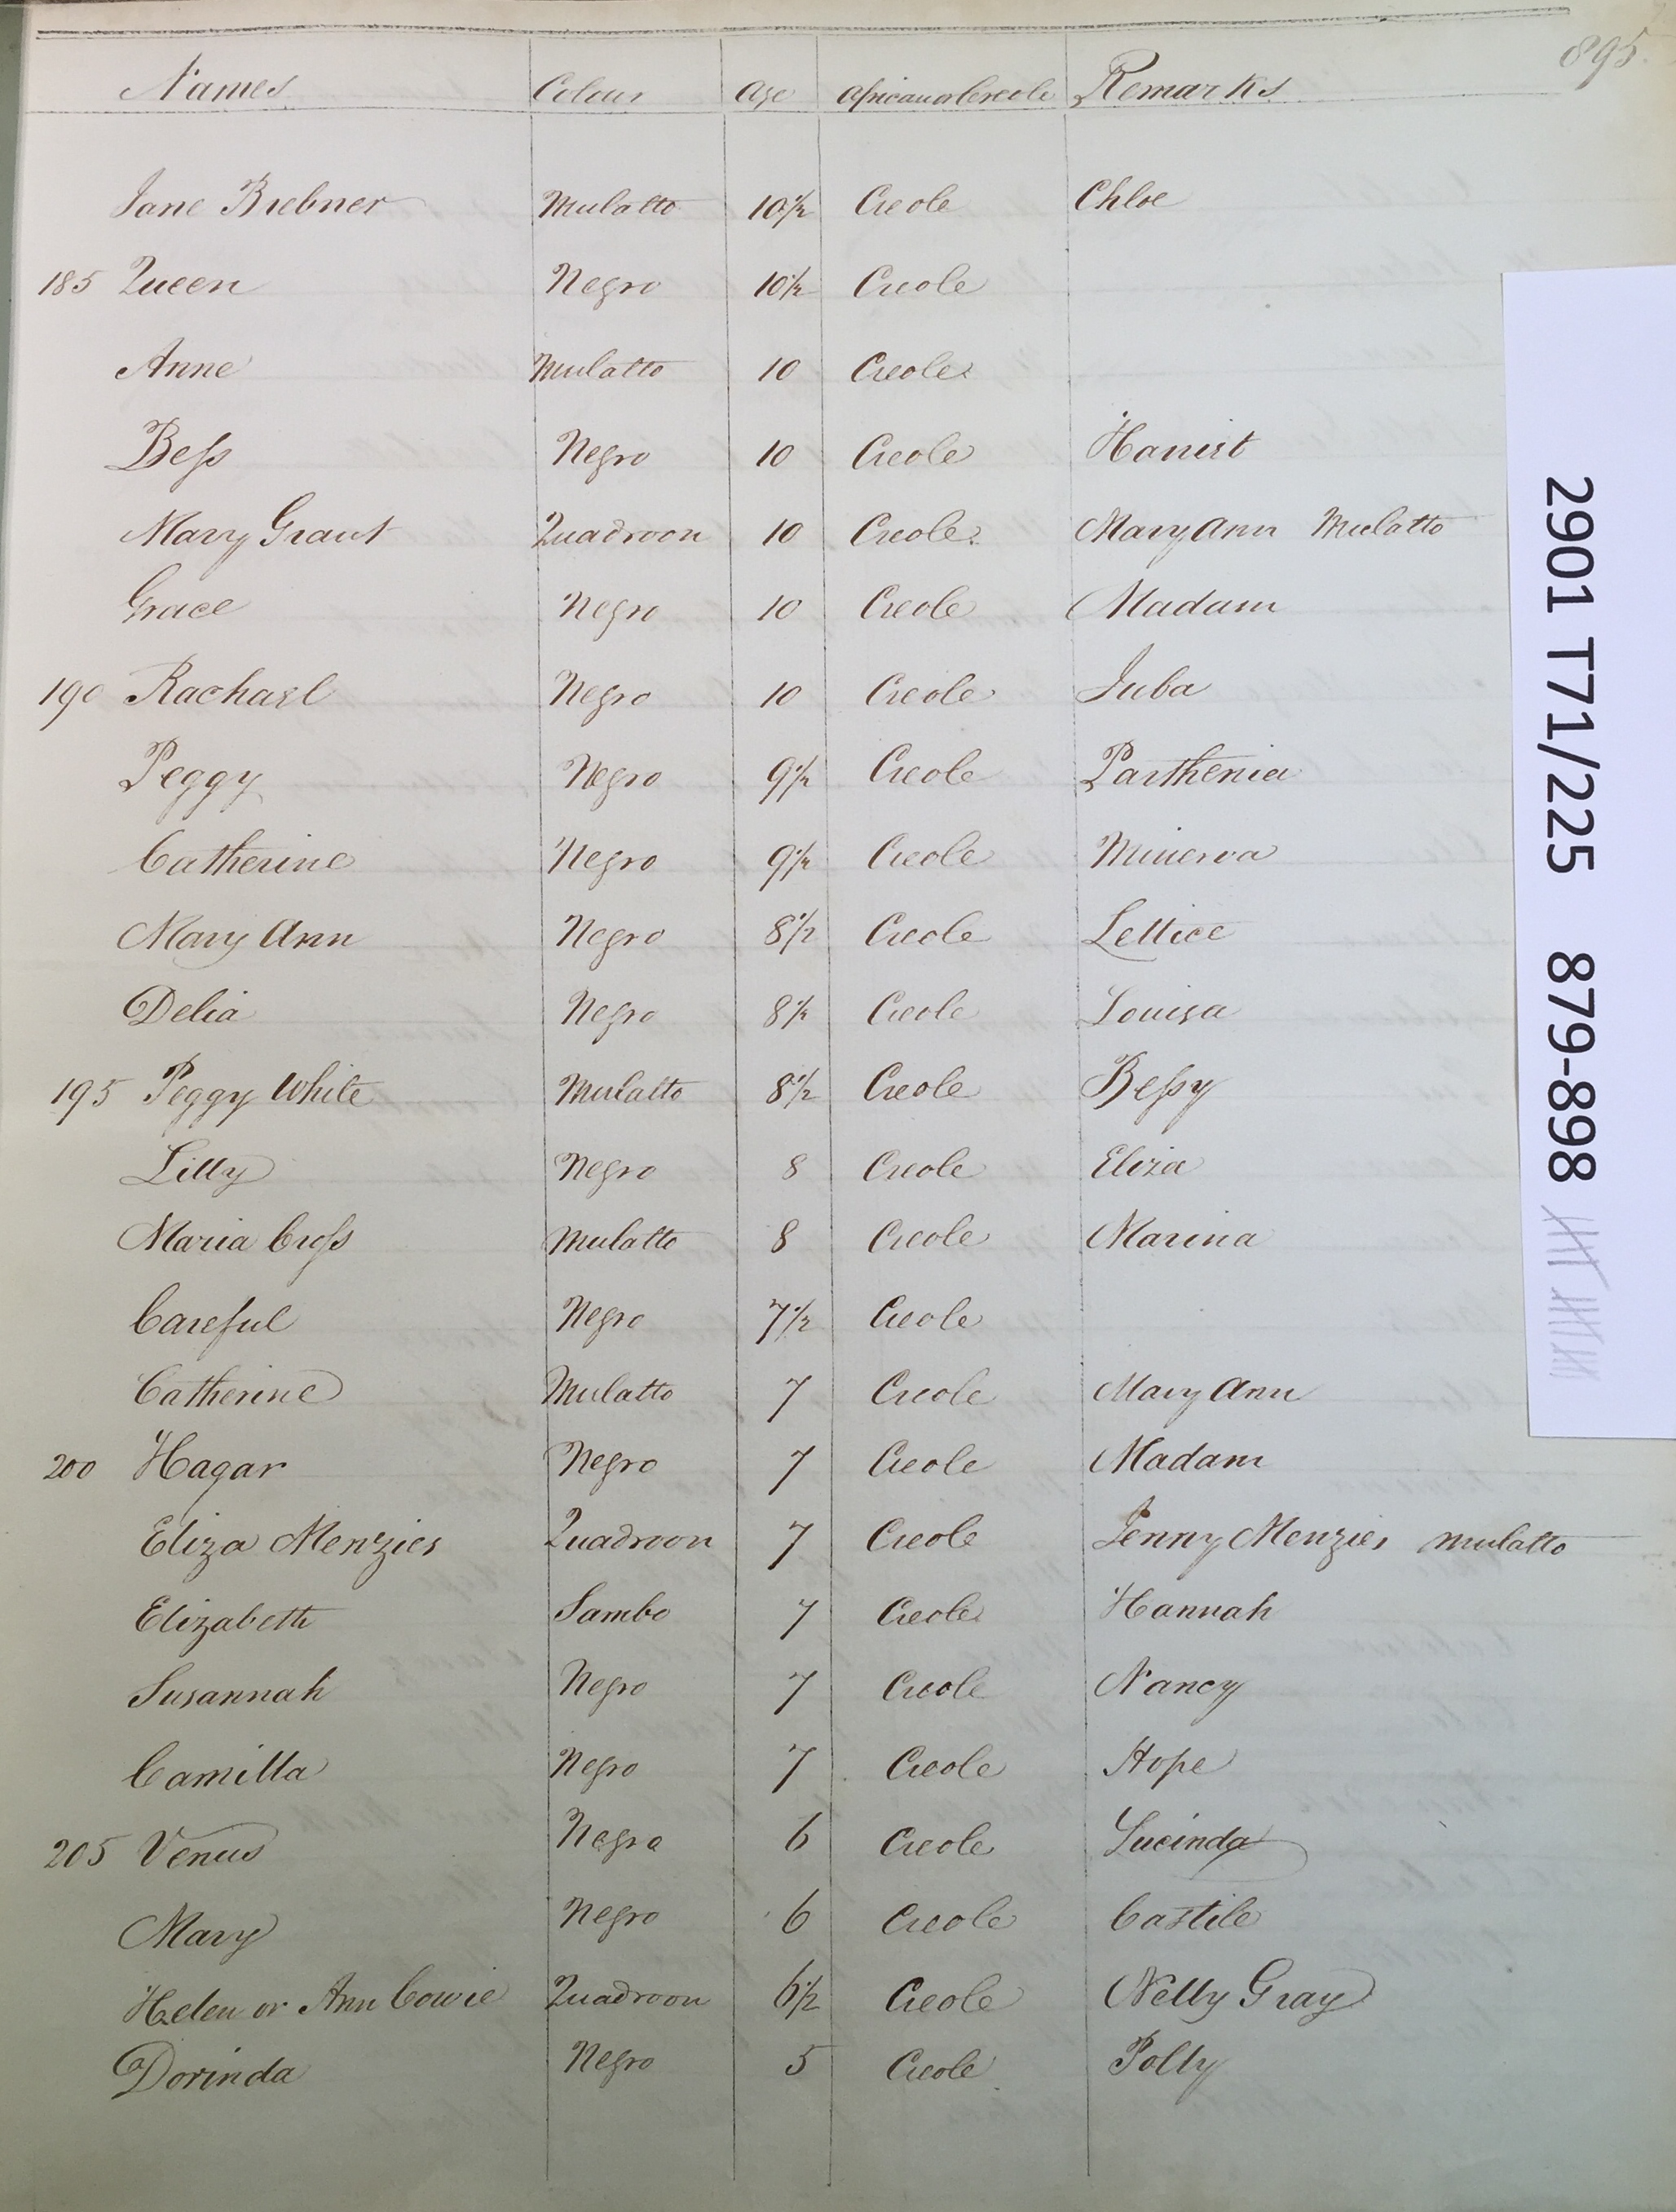 895.
Names Colour Age African or Creole Remarks
Jane Brebner Mulatto 10½ Creole Chloe
185 Queen Negro 10½ Creole
Anne Mulatto 10 Creole
Bess Negro 10 Creole Harriet
Mary Grant Quadroon 10 Creole Mary Ann Mulatto
Grace Negro 10 Creole Madam
190 Rachael Negro 10 Creole Juba
Peggy Negro 9½ Creole Parthenia
Catherine Negro 9½ Creole Minerva
Mary Ann Negro 8½ Creole Lettice
Delia Negro 8½ Creole Louisa
195 Peggy White Mulatto 8½ Creole Bessy
Lilly Negro 8 Creole Eliza
Maria Cross Mulatto 8 Creole Marina
Careful Negro 7½ Creole
Catherine Mulatto 7 Creole Mary Ann
200 Hagar Negro 7 Creole Madam
Eliza Menzies Quadroon 7 Creole Jenny Menzies Mulatto
Elizabeth Sambo 7 Creole Hannah
Susannah Negro 7 Creole Nancy
Camilla Negro 7 Creole Hope
205 Venus Negro 6 Creole Lucinda
Mary Negro 6 Creole Castile
Helen or Ann Cowie Quadroon 6½ Creole Nelly Gray
Dorinda Negro 5 Creole Polly
2901 T71/225 879-898